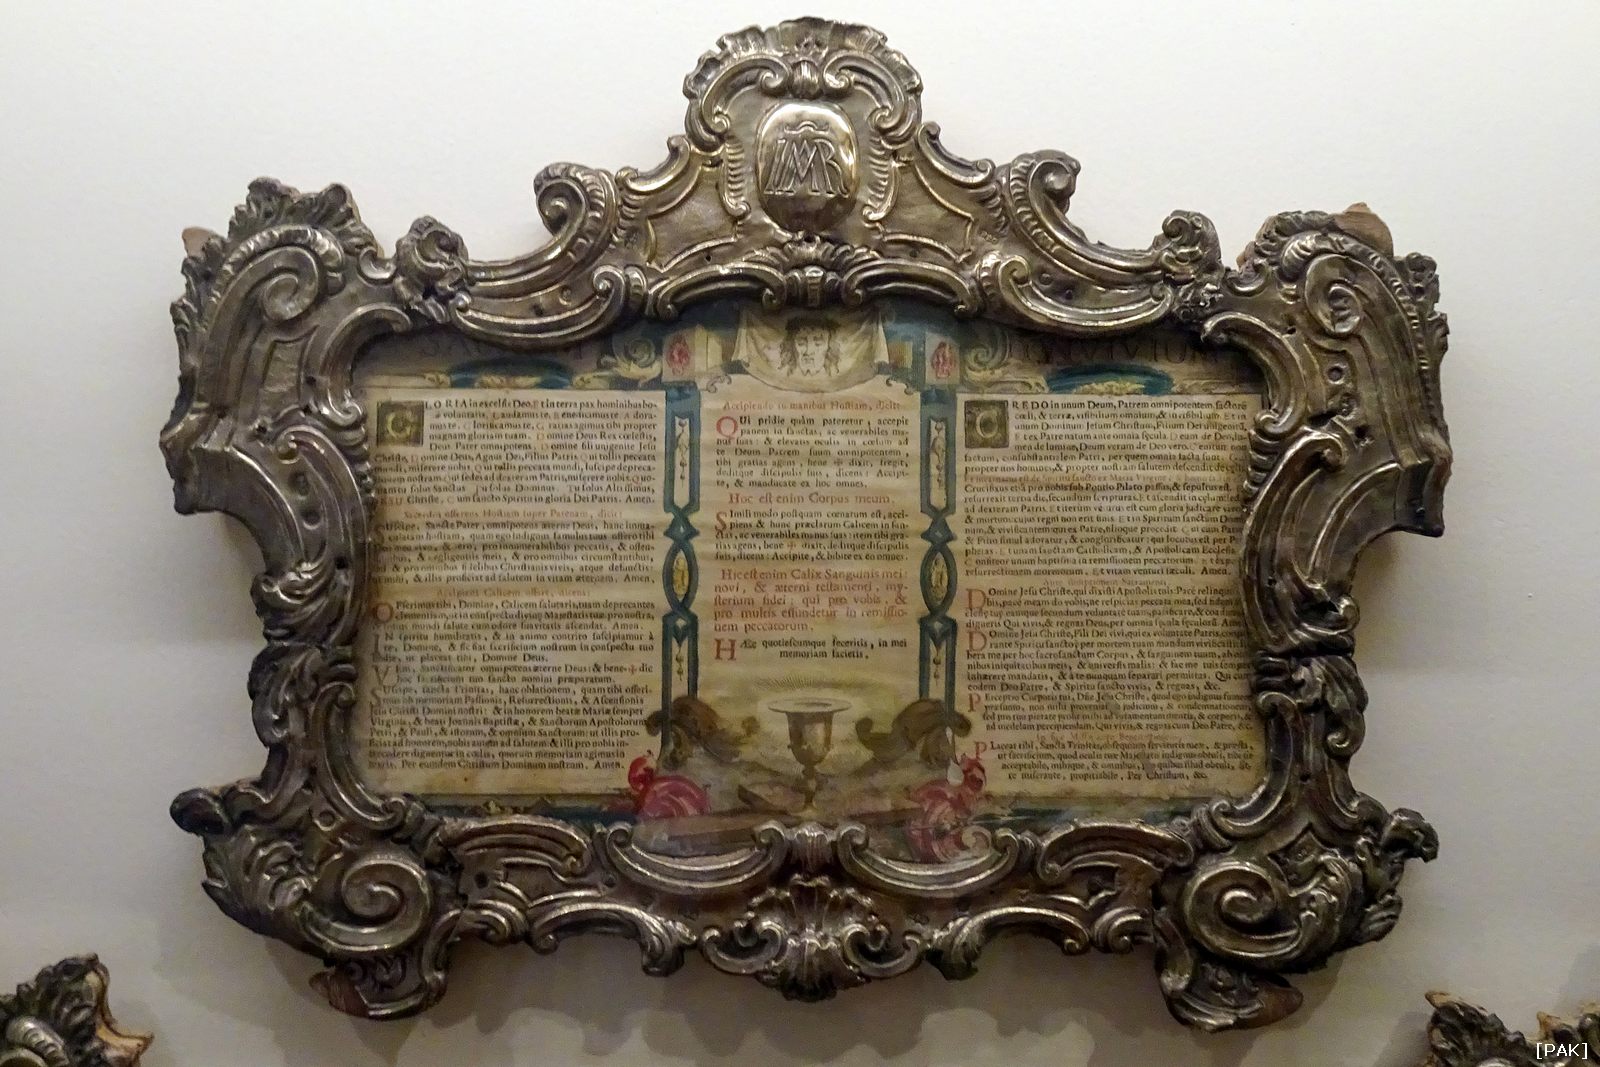 MAR
GLORIA in excelsis Deo. Et in terra pax hominibus bo-
næ voluntatis. Laudamus te. Benedicimus te. Adora-
mus te. Glorificamus te. Gratias agimus tibi propter
magnam gloriam tuam. Domine Deus Rex cœlestis,
Deus Pater omnipotens. Domine fili unigenite Jesu
Christe. Domine Deus, Agnus Dei, Filius Patris. Qui tollis peccata
mundi, miserere nobis. Qui tollis peccata mundi, suscipe depreca-
tionem nostram. Qui sedes ad dexteram Patris, miserere nobis. Quo-
niam tu solus Sanctus. Tu solus Dominus. Tu solus Altissimus,
JESU Christe. Cum sancto Spiritu in gloria Dei Patris. Amen.
Sacerdos offerens Hostiam super Patenam, dicit:
Suscipe, Sancte Pater, omnipotens æterne Deus, hanc imma-
culatam hostiam, quam ego indignus famulus tuus offero tibi
Deo meo vivo, & vero, pro innumerabilibus peccatis, & offen-
sionibus, & negligentiis meis, & pro omnibus circumstantibus,
sed & pro omnibus fidelibus Christianis vivis, atque defunctis:
ut mihi, & illis proficiat ad salutem in vitam æternam. Amen.
Accipiens Calicem offert, dicens:
Offerimus tibi, Domine, Calicem salutaris, tuam deprecantes
clementiam, ut in conspectu divinæ Majestatis tuæ pro nostra,
& totius mundi salute cum odore suavitatis ascendat. Amen.
IN spiritu humilitatis, & in animo contrito suscipiamur à
te, Domine, & sic fiat sacrificium nostrum in conspectu tuo
hodie, ut placeat tibi, Domine Deus.
VEni, Sanctificator omnipotens æterne Deus: & bene ✠ dic
hoc sacrificium tuo sancto nomini præparatum.
SUscipe, sancta Trinitas, hanc oblationem, quam tibi offeri-
mus ob memoriam Passionis, Resurrectionis, & Ascensionis
Jesu Christi Domini nostri: & in honorem beatæ Mariæ semper
Virginis, & beati Joannis Baptistæ, & Sanctorum Apostolorum
Petri, & Pauli, & istorum, & omnium Sanctorum: ut illis pro-
ficiat ad honorem, nobis autem ad salutem: & illi pro nobis in-
tercedere dignentur in cœlis, quorum memoriam agimus in
terris. Per eundem Christum Dominum nostrum. Amen.
Accipiendo in manibus Hostiam, dicit:
QUi pridie quàm pateretur, accepit
panem in sanctas, ac venerabiles ma-
nus suas: & elevatis oculis in cœlum ad
te Deum Patrem suum omnipotentem,
tibi gratias agens, bene ✠ dixit, fregit,
deditque discipulis suis, dicens: Accipi-
te, & manducate ex hoc omnes.
Hoc est enim Corpus meum.
SImili modo postquam cœnatum est, acci-
piens & hunc præclarum Calicem in san-
ctas, ac venerabiles manus suas: item tibi gra-
tias agens, bene ✠ dixit, deditque discipulis
suis, dicens: Accipite, & bibite ex eo omnes.
Hic est enim Calix Sanguinis mei:
novi, & æterni testamenti, my-
sterium fidei: qui pro vobis, &
pro multis effundetur in remissio-
nem peccatorum.
HÆc quotiescumque feceritis, in mei
memoriam facietis.
CREDO in unum Deum, Patrem omnipotentem, factorem
cœli, & terræ, visibilium omnium, & invisibilium. Et in
unum Dominum Jesum Christum, Filium Dei unigenitum.
Et ex Patre natum ante omnia sæcula. Deum de Deo, lu-
men de lumine, Deum verum de Deo vero. Genitum non
factum, consubstantialem Patri, per quem omnia facta sunt. Qui
propter nos homines, & propter nostram salutem descendit de cœlis.
Et incarnatus est de Spiritu sancto ex Maria Virgine: & homo factus est.
Crucifixus etiã pro nobis sub Pontio Pilato passus, & sepultus est. Et
resurrexit tertia die, secundùm scripturas. Et ascendit in cœlum: sedet
ad dexteram Patris. Et iterum venturus est cum gloria judicare vivos,
& mortuos: cujus regni non erit finis. Et in Spiritum sanctum Domi-
num, & vivificantem: qui ex Patre, filioque procedit. Qui cum Patre,
& Filio simul adoratur, & conglorificatur: qui locutus est per Pro-
phetas. Et unam sanctam Catholicam, & Apostolicam Ecclesiam.
Confiteor unum baptisma in remissionem peccatorum. Et expecto
resurrectionem mortuorum. Et vitam venturi sæculi. Amen.
Ante sumptionem Sacramenti.
DOmine Jesu Christe, qui dixisti Apostolis tuis: Pacẽ relinquo vo-
bis, pacẽ meam do vobis, ne respicias peccata mea, sed fidem Ec-
clesiæ tuæ: eamque secundum voluntatẽ tuam, pacificare, & coadunare
digneris: Qui vivis, & regnas Deus, per omnia sæcula sæculorũ. Amen.
DOmine Jesu Christe, Fili Dei vivi, qui ex voluntate Patris, coope-
rante Spiritu sancto, per mortem tuam mundum vivificasti, li-
bera me per hoc sacrosanctum Corpus, & sanguinem tuum, ab om-
nibus iniquitatibus meis, & universis malis: & fac me tuis semper in-
hærere mandatis, & à te nunquam separari permittas. Qui cum
eodem Deo Patre, & Spiritu sancto vivis, & regnas, &c.
PErceptio Corporis tui, Dñe Jesu Christe, quod ego indignus sumere
præsumo, non mihi proveniat in judicium, & condemnationem:
sed pro tua pietate prosit mihi ad tutamentum mentis, & corporis, &
ad medelam percipiendam. Qui vivis, & regnas cum Deo Patre, &c.
In fine Missæ ante Benedictionem.
PLaceat tibi, Sancta Trinitas, obsequium servitutis meæ, & præsta,
ut sacrificium, quod oculis tuæ Majestatis indignus obtuli, tibi sit
acceptabile, mihique, & omnibus, pro quibus illud obtuli, sit,
te miserante, propitiabile. Per Christum, &c.
[PAK]